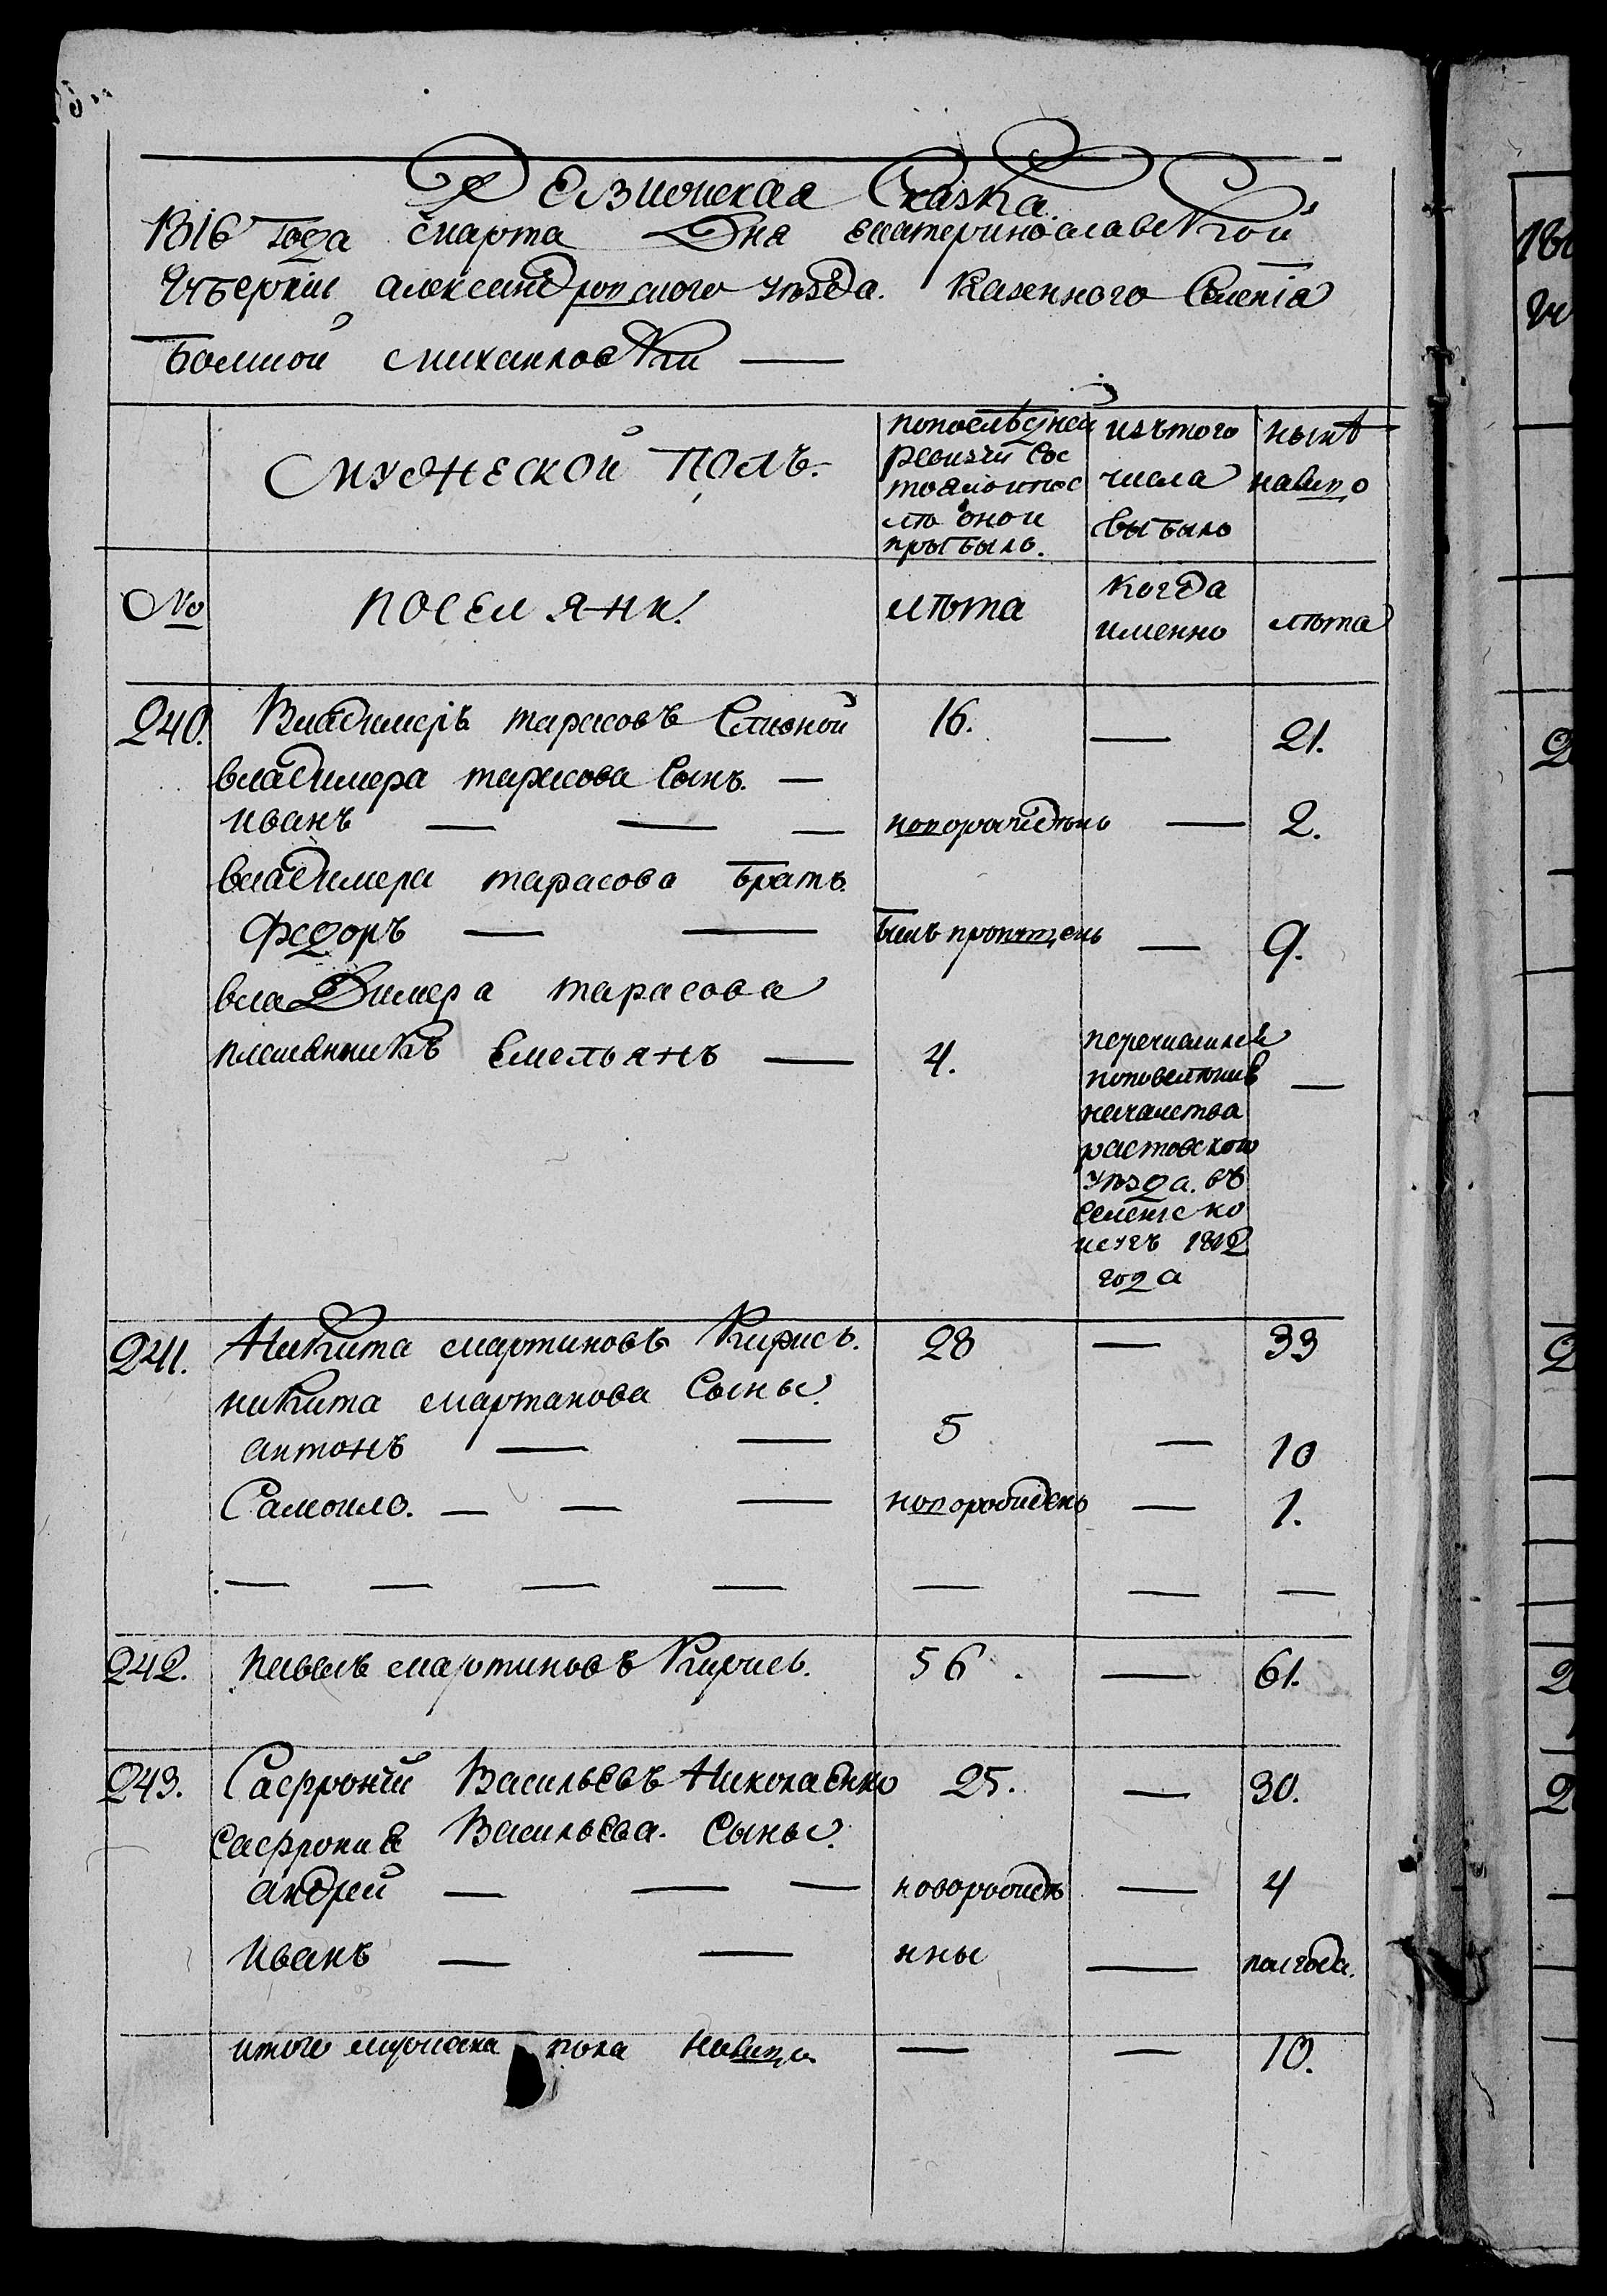 Ревизиская Сказка.
1816 года марта Дня Екатеринославской
Губернии александровского уезда. Казенного Селенія
большой михаиловки —
мужеской полъ.
попоследней ревизіи состояло ипосле оной прыбыло.
изътого числа выбыло
ныне налицо
№
поселяни.
лѣта
когда именно
лѣта
240. Владимеръ тарасовъ Сливной 16. — 21.
владимера тарасова Сынъ. —
иванъ — — — новорожденъ — 2.
владимера тарасова братъ.
Федоръ — — былъ пропущенъ — 9.
владимера тарасова
племянникъ Емельянъ — 4. —
перечислился
поповелению
началства
растовского
уезда. въ
селение ко
1812
года
241. Никита мартиновъ Кирисъ. 28 — 33
никита мартанова Сыны.
антонъ — — 5 — 10
Самоило. — — — новорожденъ — 1.
— — — — — — —
242. павелъ мартиновъ Кирисъ. 56. — 61.
243. Сафроній Васильевъ Николаенко 25. — 30.
Сафрония Васильева. Сыны.
андрей — — — новорожде — 4
иванъ — — нны — полгода.
итого мужеска пола налицо — — 10.